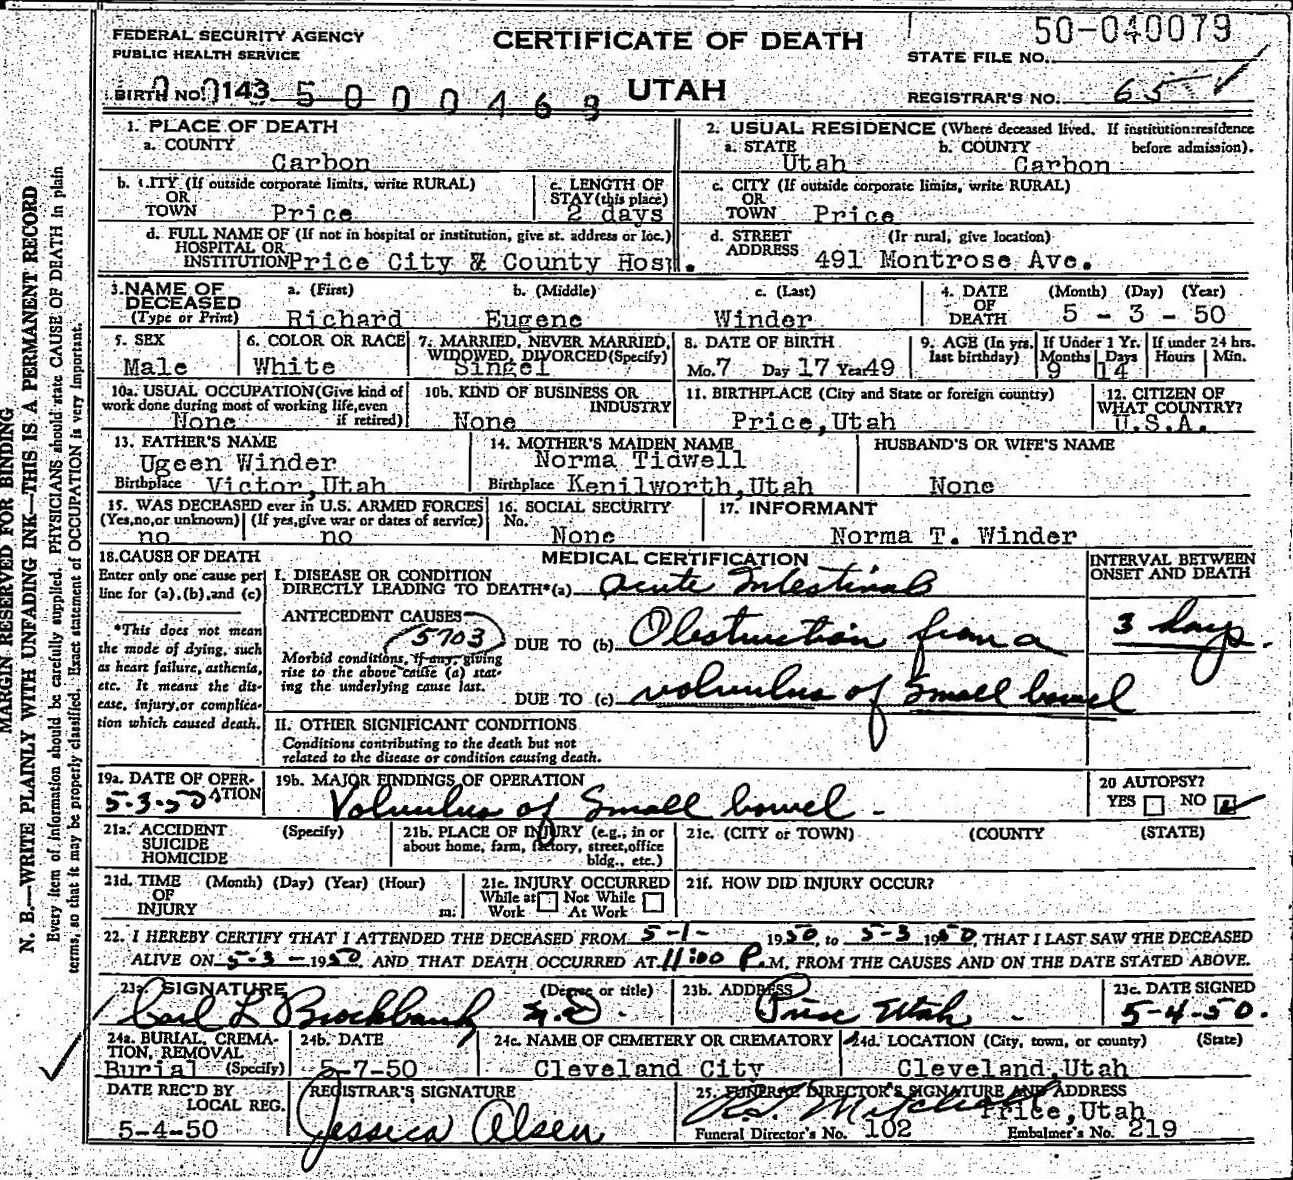 FEDERAL SECURITY AGENCY
PUBLIC HEALTH SERVICE
CERTIFICATE OF DEATH
UTAH
STATE FILE NO. 50-040079
BIRTH NO. 143 5 0 0 0 4 6 8
REGISTRAR'S NO. 65
1. PLACE OF DEATH
a. COUNTY
Carbon
2. USUAL RESIDENCE (Where deceased lived. If institution:residence before admission).
a. STATE Utah b. COUNTY Carbon
b. CITY (If outside corporate limits, write RURAL)
OR
TOWN Price
c. LENGTH OF
STAY (this place)
2 days
c. CITY (If outside corporate limits, write RURAL)
OR
TOWN Price
d. FULL NAME OF (If not in hospital or institution, give st. address or loc.)
HOSPITAL OR
INSTITUTION Price City & County Hosp.
d. STREET (Ir rural, give location)
ADDRESS 491 Montrose Ave.
3. NAME OF DECEASED
(Type or Print)
a. (First) b. (Middle) c. (Last)
Richard Eugene Winder
4. DATE OF DEATH (Month) (Day) (Year)
5 - 3 - 50
5. SEX
Male
6. COLOR OR RACE
White
7. MARRIED, NEVER MARRIED,
WIDOWED, DIVORCED (Specify)
Singel
8. DATE OF BIRTH
Mo. 7 Day 17 Year 49
9. AGE (In yrs. last birthday) If Under 1 Yr. If under 24 hrs.
Months Days Hours Min.
9 14
10a. USUAL OCCUPATION (Give kind of
work done during most of working life, even
if retired)
None
10b. KIND OF BUSINESS OR
INDUSTRY
None
11. BIRTHPLACE (City and State or foreign country)
Price, Utah
12. CITIZEN OF
WHAT COUNTRY?
U.S.A.
13. FATHER'S NAME
Ugeen Winder
Birthplace Victor, Utah
14. MOTHER'S MAIDEN NAME
Norma Tidwell
Birthplace Kenilworth, Utah
HUSBAND'S OR WIFE'S NAME
None
15. WAS DECEASED ever in U.S. ARMED FORCES
(Yes, no, or unknown) (If yes, give war or dates of service)
no no
16. SOCIAL SECURITY
No.
None
17. INFORMANT
Norma T. Winder
18. CAUSE OF DEATH
Enter only one cause per
line for (a), (b), and (c)
*This does not mean
the mode of dying, such
as heart failure, asthenia,
etc. It means the dis-
ease, injury, or complica-
tion which caused death.
MEDICAL CERTIFICATION
INTERVAL BETWEEN
ONSET AND DEATH
I. DISEASE OR CONDITION
DIRECTLY LEADING TO DEATH* (a) acute Intestinal
ANTECEDENT CAUSES
5703
DUE TO (b) Obstruction from a
3 days.
Morbid conditions, if any, giving
rise to the above cause (a) stat-
ing the underlying cause last.
DUE TO (c) volvulus of small bowel
II. OTHER SIGNIFICANT CONDITIONS
Conditions contributing to the death but not
related to the disease or condition causing death.
19a. DATE OF OPER-
ATION
5-3-50
19b. MAJOR FINDINGS OF OPERATION
Volvulus of Small bowel -
20 AUTOPSY?
YES NO
21a. ACCIDENT (Specify)
SUICIDE
HOMICIDE
21b. PLACE OF INJURY (e.g., in or
about home, farm, factory, street, office
bldg., etc.)
21c. (CITY or TOWN) (COUNTY) (STATE)
21d. TIME (Month) (Day) (Year) (Hour)
OF
INJURY m.
21e. INJURY OCCURRED
While at Not While
Work At Work
21f. HOW DID INJURY OCCUR?
22. I HEREBY CERTIFY THAT I ATTENDED THE DECEASED FROM 5-1- 1950, to 5-3 1950, THAT I LAST SAW THE DECEASED
ALIVE ON 5-3- 1950, AND THAT DEATH OCCURRED AT 11:00 P.M, FROM THE CAUSES AND ON THE DATE STATED ABOVE.
23a. SIGNATURE (Degree or title)
Carl L Brockbank M.D.
23b. ADDRESS
Price Utah
23c. DATE SIGNED
5-4-50.
24a. BURIAL, CREMA-
TION, REMOVAL
Burial (Specify)
24b. DATE
5-7-50
24c. NAME OF CEMETERY OR CREMATORY
Cleveland City
24d. LOCATION (City, town, or county) (State)
Cleveland, Utah
DATE REC'D BY
LOCAL REG.
5-4-50
REGISTRAR'S SIGNATURE
Jessica Olsen
25. FUNERAL DIRECTOR'S SIGNATURE AND ADDRESS
Mitchell
Price, Utah
Funeral Director's No. 102 Embalmer's No. 219
MARGIN RESERVED FOR BINDING
N. B.—WRITE PLAINLY WITH UNFADING INK—THIS IS A PERMANENT RECORD
Every item of information should be carefully supplied. PHYSICIANS should state CAUSE OF DEATH in plain
terms, so that it may be properly classified. Exact statement of OCCUPATION is very important.